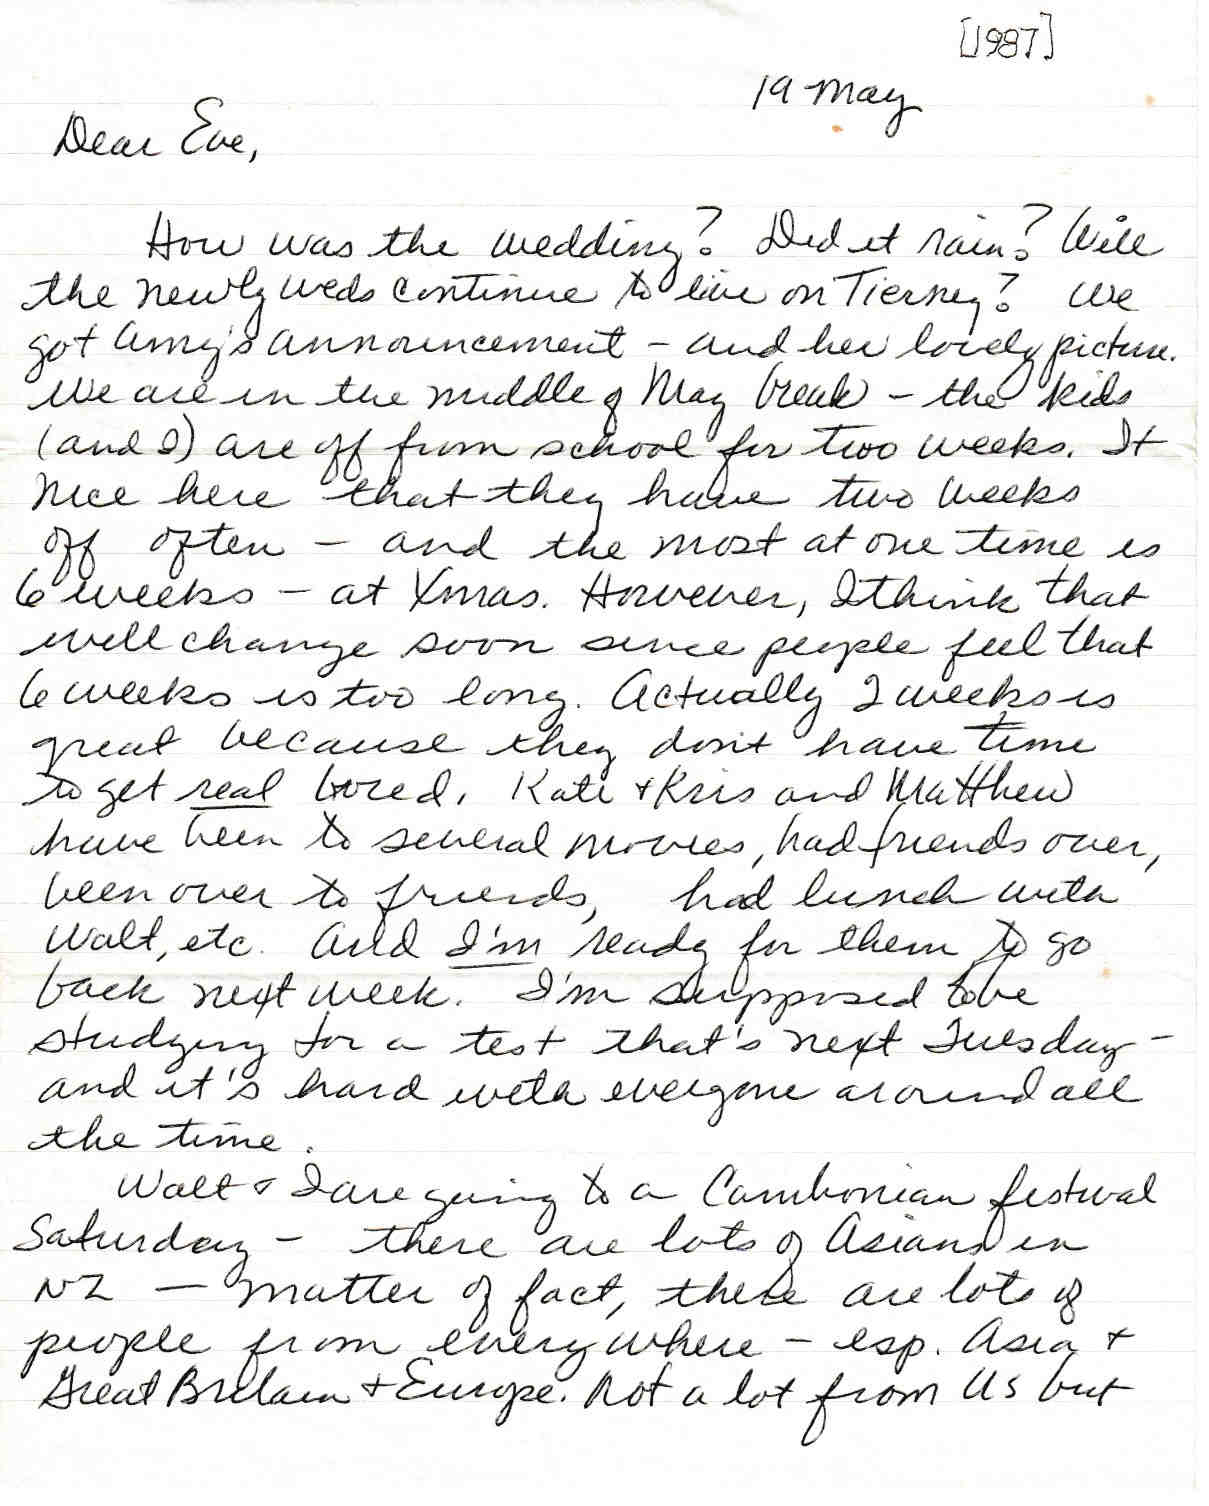 [1987]
19 May
Dear Eve,
How was the wedding? Did it rain? Will
the newly weds continue to live on Tierney? We
got Amy's announcement – and her lovely picture.
We are in the middle of May break – the kids
(and I) are off from school for two weeks. It
nice here that they have two weeks
off often – and the most at one time is
6 weeks – at Xmas. However, I think that
will change soon since people feel that
6 weeks is too long. Actually 2 weeks is
great because they don't have time
to get real bored. Kate + Kris and Matthew
have been to several movies, had friends over,
been over to friends, had lunch with
Walt, etc. And I'm ready for them to go
back next week. I'm supposed to be
studying for a test that's next Tuesday –
and it's hard with everyone around all
the time.
Walt & I are going to a Cambonian festival
Saturday – there are lots of Asians in
NZ – matter of fact, there are lots of
people from everywhere – esp. Asia +
Great Britain + Europe. Not a lot from US but